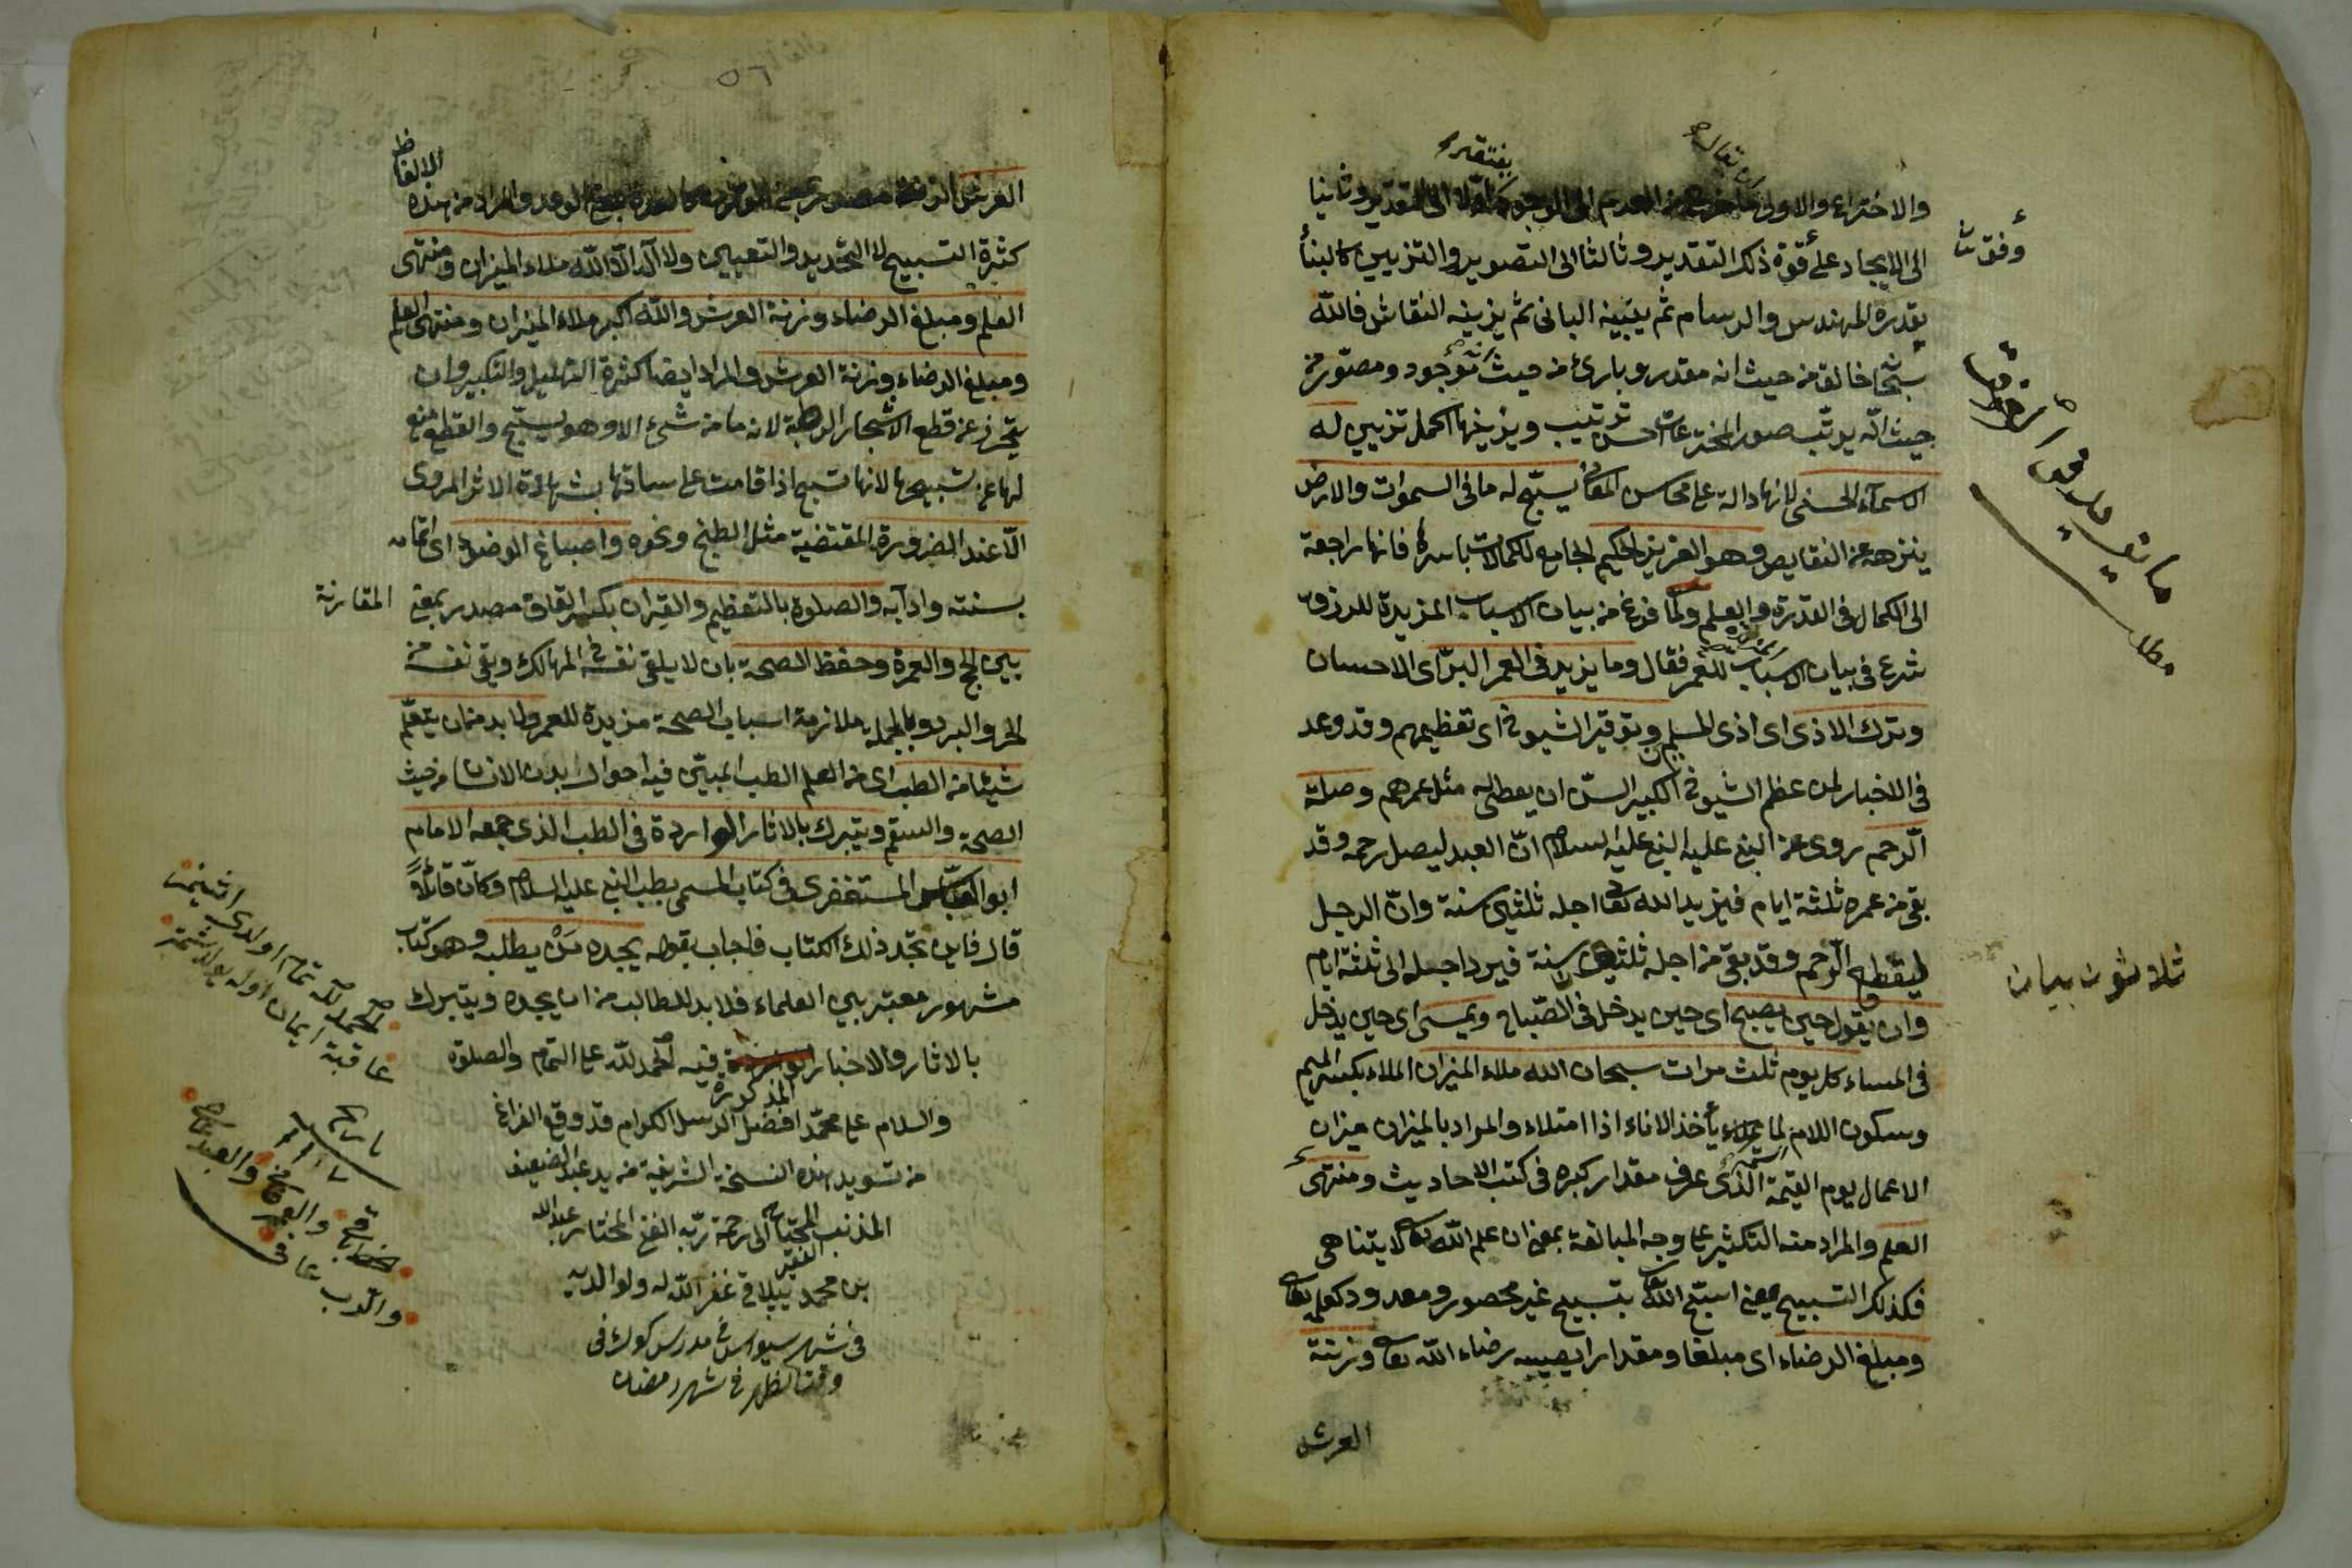 والاختراع والاولى
الى التقدير وثانيا
الى الايجاد على قوة ذلك التقدير وثالثا الى التصوير والتزيين كالبناء
يقدره المهندس والرسام ثم يبنيه البانى ثم يزينه النقاش فالله
سبحا خالق من حيث انه مقدر وبارئ من حيث انه موجود ومصور من
حيث انه يرتب صور المخترعات احسن ترتيب ويزينها اكمل تزيين له
الاسماء الحسنى لانها دالة على محاسن المعانى يسبح له ما فى السموات والارض
ينزهه عن النقايص وهو العزيز الحكيم الجامع لكمالات باسرها فانها راجعة
الى الكمال فى القدرة والعلم ولما فرغ من بيان الاسباب المزيدة للرزق
شرع فى بيان الاسباب للعمر فقال وما يزيد فى العمر البر اى الاحسان
وترك الاذى اى اذى المسلم وتوقير الشيوخ اى تعظيمهم وقد وعد
فى الاخبار لمن عظم الشيوخ الكبير السن ان يعطى له مثل عمرهم وصلة
الرحم روى عن النبى عليه النبى عليه السلام ان العبد ليصل رحمه وقد
بقى من عمره ثلثة ايام فيزيد الله تعا اجله ثلثين سنة وان الرجل
ليقطع الرحم وقد بقى من اجله ثلثين سنة فيرد اجله الى ثلثة ايام
وان يقول حين يصبح اى حين يدخل فى الصباح ويمسى اى حين يدخل
فى المساء كل يوم ثلث مرات سبحان الله ملاء الميزان الملاء بكسر الميم
وسكون اللام لما يأخذ الاناء اذا امتلاء والمراد بالميزان ميزان
الاعمال يوم القيمة الذى عرف مقدار كبره فى كتب الاحاديث ومنتهى
العلم والمراد منه التكثير على وجه المبالغة بمعنى ان علم الله تعا لا يتناهى
فكذلك التسبيح يعنى اسبح الله تعا بتسبيح غير محصور ومعدود كعلمه تعا
ومبلغ الرضاء اى مبلغا ومقدارا يصيبه رضاء الله تعا وزنة
العرش
ثلاوثون بيان
مطلب
٥٦
الالفاظ
العرش الزنة مصدر والمراد من هذه
كثرة التسبيح لا التحديد والتعيين ولا اله الا الله ملاء الميزان ومنتهى
العلم ومبلغ الرضاء وزنة العرش والله اكبر ملاء الميزان ومنتهى العلم
ومبلغ الرضاء وزنة العرش والمراد ايضا كثرة التهليل والتكبير وان
يتحرز عن قطع الاشجار الرطبة لانه ما من شئ الا وهو يسبح والقطع منع
لها عن تسبيحها لانها تسبح اذا قامت على ساقها بشهادة الاثر المروى
الا عند الضرورة المقتضية مثل الطبخ ونحوه واصباغ الوضوء اى اتمام
بسننه وادابه والصلوة بالتعظيم والقران بكسر القاف مصدر بمعنى المقارنة
بين الحج والعمرة وحفظ الصحة بان لا يلقى نفسه فى المهالك ويقى نفسه من
الحر والبرد وبالجملة ملازمة اسباب الصحة مزيدة للعمر ولا بد من ان يتعلم
شيئا من الطب اى من العلم الطب المبين فيه احوال بدن الانسان من حيث
الصحة والسقم ويتبرك بالاثار الواردة فى الطب الذى جمعه الامام
ابو العباس المستغفرى فى كتاب المسمى بطب النبى عليه السلام وكأن قائلا
قال فاين نجد ذلك الكتاب فاجاب بقوله يجده من يطلبه وهو كتاب
مشهور معتبر بين العلماء فلا بد للطالب من ان يجده ويتبرك
بالاثار والاخبار المذكورة فيه الحمد لله على التمام والصلوة
والسلام على محمد افضل الرسل الكرام قد وقع الفراغ
من تسويد هذه النسخة الشريفة من يد عبد الضعيف
المذنب المحتاج الى رحمة ربه الغنى المختار عبد الله
الفقير
بن محمد غفر الله له ولوالديه
فى شهر سيواس فى مدرس كوك فى
وقت الظهر فى شهر رمضان
الحمد لله تمام اولدى
عاقبة ايمان اوله